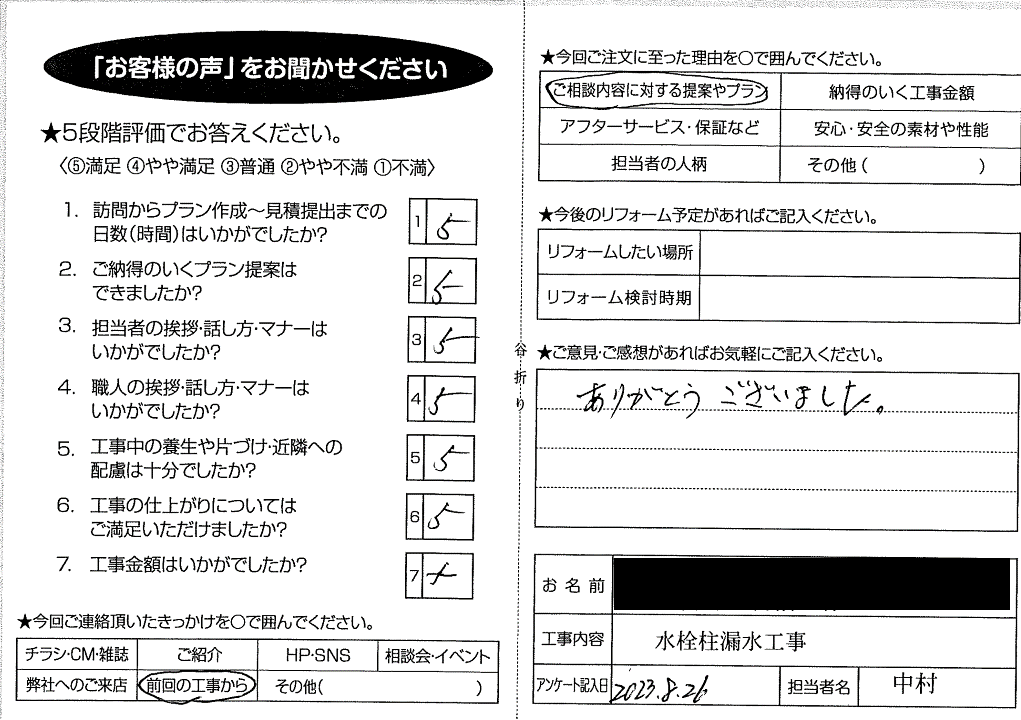 「お客様の声」をお聞かせください
★5段階評価でお答えください。
〈⑤満足 ④やや満足 ③普通 ②やや不満 ①不満〉
1. 訪問からプラン作成～見積提出までの
日数(時間)はいかがでしたか?
1 5
2. ご納得のいくプラン提案は
できましたか?
2 5
3. 担当者の挨拶・話し方・マナーは
いかがでしたか?
3 5
4. 職人の挨拶・話し方・マナーは
いかがでしたか?
4 5
5. 工事中の養生や片づけ・近隣への
配慮は十分でしたか?
5 5
6. 工事の仕上がりについては
ご満足いただけましたか?
6 5
7. 工事金額はいかがでしたか?
7
★今回ご連絡頂いたきっかけを〇で囲んでください。
チラシ・CM・雑誌 ご紹介 HP・SNS 相談会・イベント
弊社へのご来店 前回の工事から その他( )
谷折り
★今回ご注文に至った理由を〇で囲んでください。
ご相談内容に対する提案やプラン 納得のいく工事金額
アフターサービス・保証など 安心・安全の素材や性能
担当者の人柄 その他( )
★今後のリフォーム予定があればご記入ください。
リフォームしたい場所
リフォーム検討時期
★ご意見・ご感想があればお気軽にご記入ください。
ありがとうございました。
お名前
工事内容 水栓柱漏水工事
アンケート記入日 2023.8.26 担当者名 中村